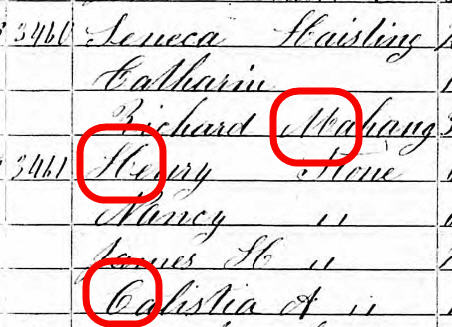 3460 Seneca Haisting
Catharin
Richard Mahany
3461 Henry Stone
Nancy "
James H "
Calistia A "